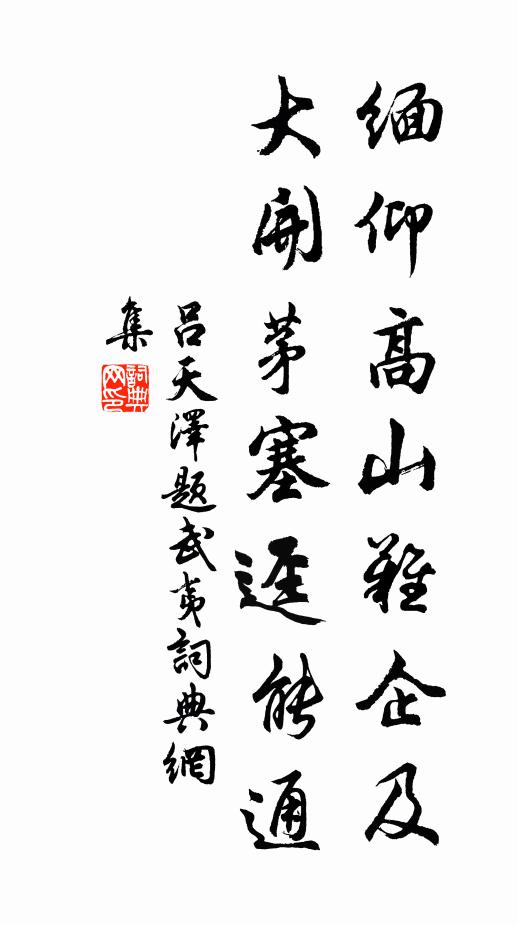 缅仰高山難企及
大開茅塞逕能通
吕天澤題武夷詞典網
集
詞典网印